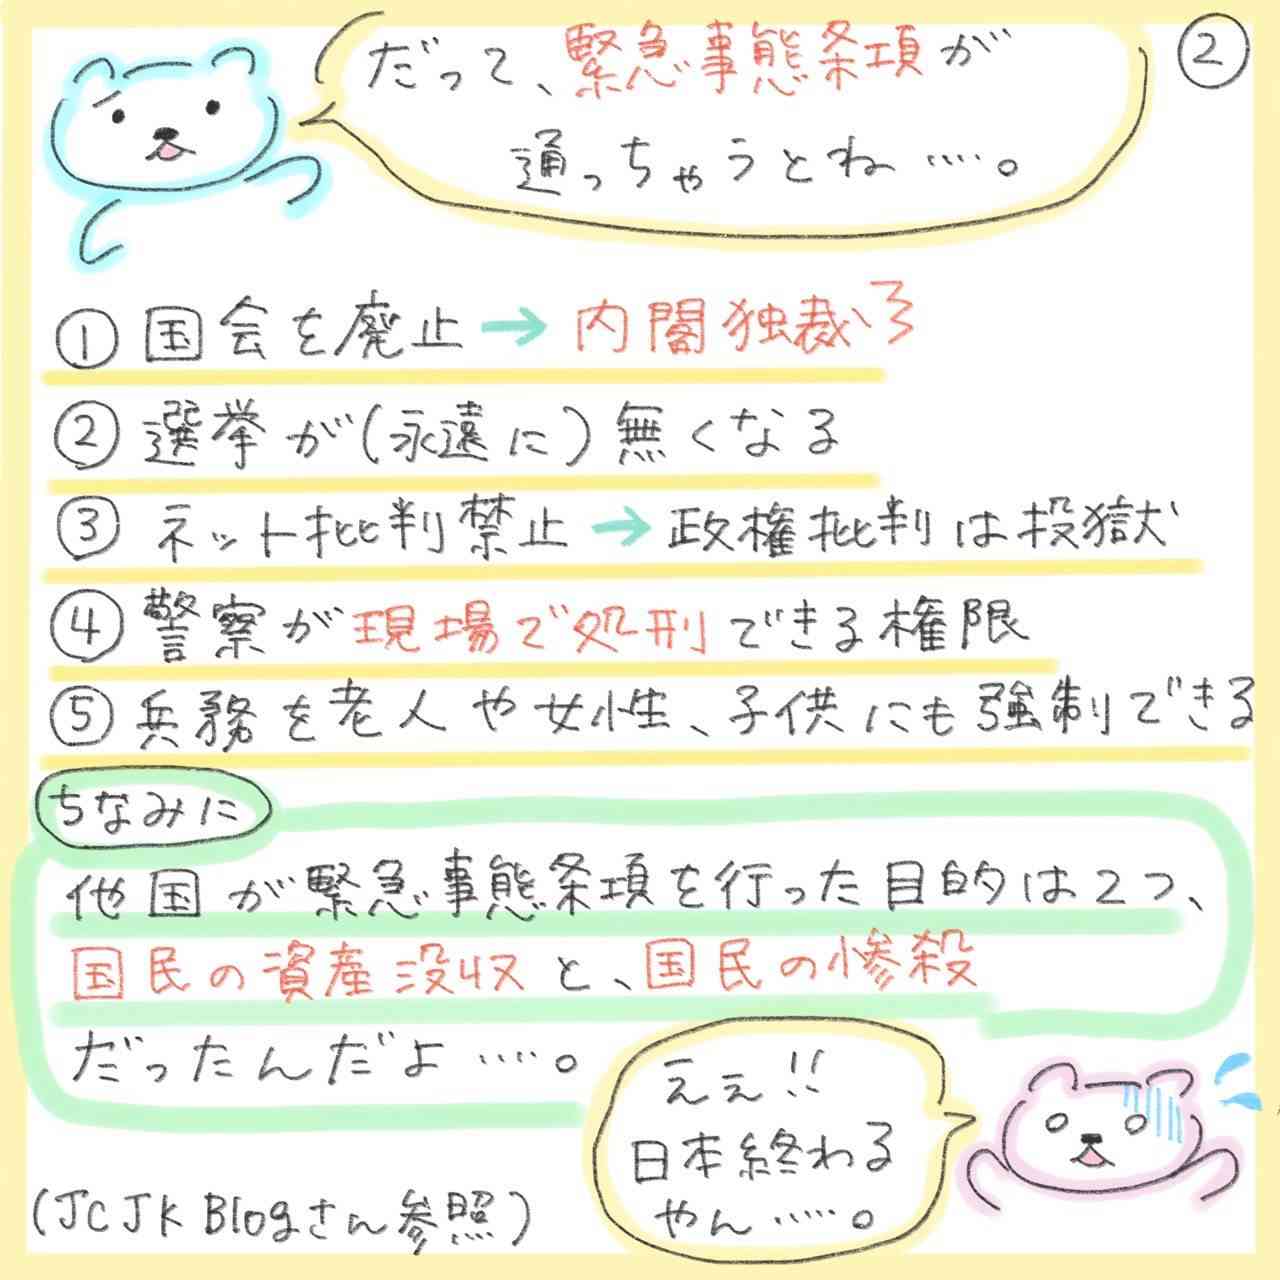 ②
だって、緊急事態条項が
通っちゃうとね……。
①国会を廃止→内閣独裁へ
②選挙が(永遠に)無くなる
③ネット批判禁止→政権批判は投獄
④警察が現場で処刑できる権限
⑤兵務を老人や女性、子供にも強制できる
ちなみに
他国が緊急事態条項を行った目的は2つ、
国民の資産没収と、国民の惨殺
だったんだよ……。
ええ!!
日本終わる
やん……。
(JCJK Blogさん参照)